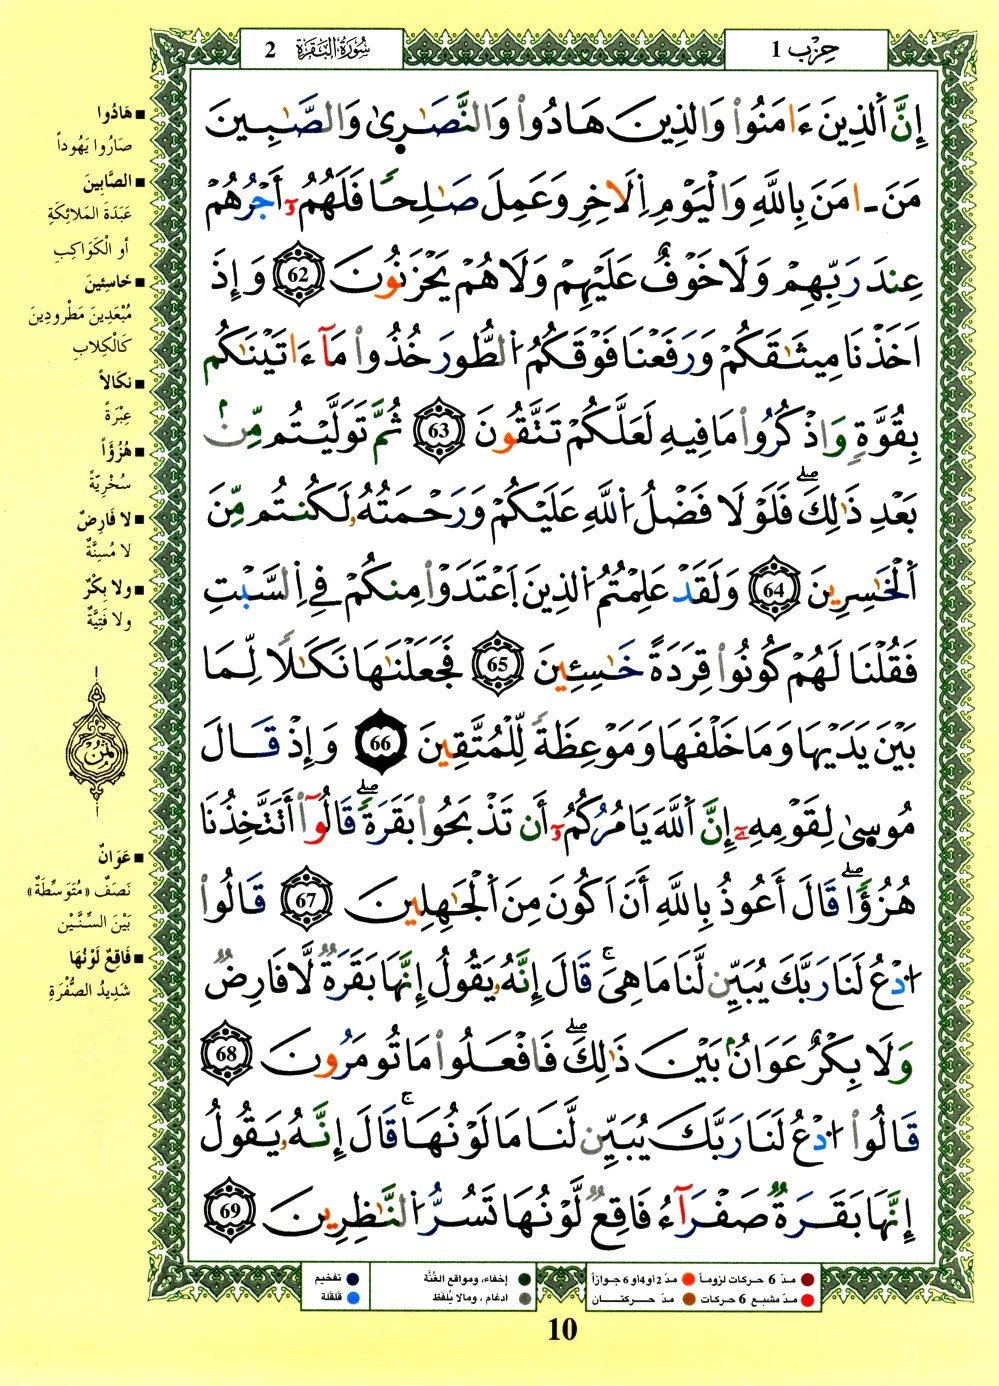 حِزْب 1
سُورَةُ البَقَرَة 2
إِنَّ اَلذِينَ ءَامَنُواْ وَالذِينَ هَادُواْ وَالنَّصَٰرِىٰ وَالصَّٰبِينَ
مَنَ ـ امَنَ بِاللَّهِ وَالْيَوْمِ اِلَاخِرِ وَعَمِلَ صَٰلِحاً فَلَهُمُۥٓ أَجْرُهُمْ
عِندَ رَبِّهِمْ وَلَا خَوْفٌ عَلَيْهِمْ وَلَا هُمْ يَحْزَنُونَ 62 وَإِذَ
اَخَذْنَا مِيثَٰقَكُمْ وَرَفَعْنَا فَوْقَكُمُ اُلطُّورَ خُذُواْ مَآ ءَاتَيْنَٰكُم
بِقُوَّةٖ وَاذْكُرُواْ مَا فِيهِ لَعَلَّكُمْ تَتَّقُونَ 63 ثُمَّ تَوَلَّيْتُم مِّنۢ
بَعْدِ ذَٰلِكَۖ فَلَوْلَا فَضْلُ اُللَّهِ عَلَيْكُمْ وَرَحْمَتُهُۥ لَكُنتُم مِّنَ
اَلْخَٰسِرِينَ 64 وَلَقَدْ عَلِمْتُمُ اُلذِينَ اَعْتَدَوْاْ مِنكُمْ فِے اِلسَّبْتِ
فَقُلْنَا لَهُمْ كُونُواْ قِرَدَةً خَٰسِـِٔينَ 65 فَجَعَلْنَٰهَا نَكَٰلاً لِّمَا
بَيْنَ يَدَيْهَا وَمَا خَلْفَهَا وَمَوْعِظَةً لِّلْمُتَّقِينَ 66 وَإِذْ قَالَ
مُوسِىٰ لِقَوْمِهِۦٓ إِنَّ اَللَّهَ يَامُرُكُمُۥٓ أَن تَذْبَحُواْ بَقَرَةًۖ قَالُوٓاْ أَتَتَّخِذُنَا
هُزُؤاًۖ قَالَ أَعُوذُ بِاللَّهِ أَنَ اَكُونَ مِنَ اَلْجَٰهِلِينَ 67 قَالُواْ
اُدْعُ لَنَا رَبَّكَ يُبَيِّن لَّنَا مَا هِىَۚ قَالَ إِنَّهُۥ يَقُولُ إِنَّهَا بَقَرَةٌ لَّا فَارِضٌ
وَلَا بِكْرٌ عَوَانُۢ بَيْنَ ذَٰلِكَۖ فَافْعَلُواْ مَا تُومَرُونَ 68
قَالُواْ اُدْعُ لَنَا رَبَّكَ يُبَيِّن لَّنَا مَا لَوْنُهَاۚ قَالَ إِنَّهُۥ يَقُولُ
إِنَّهَا بَقَرَةٌ صَفْرَآءُ فَاقِعٌ لَّوْنُهَا تَسُرُّ اُلنَّٰظِرِينَ 69
■ هَادُوا
صَارُوا يَهُوداً
■ الصَّابِينَ
عَبَدَةَ المَلائِكَةِ
أو الْكَوَاكِبِ
■ خَاسِئِينَ
مُبْعَدِينَ مَطْرُودِينَ
كَالْكِلابِ
■ نكَالاً
عِبْرَةً
■ هُزُؤاً
سُخْرِيَّةً
■ لا فَارِضٌ
لا مُسِنَّةٌ
■ ولا بِكْرٌ
ولا فَتِيَّةٌ
ثمن
■ عَوَانٌ
نَصَفٌ «مُتَوَسِّطَةٌ»
بَيْنَ السِّنَّيْن
■ فَاقِعٌ لَوْنُهَا
شَدِيدُ الصُّفْرَةِ
● مدّ 6 حركات لزوماً ● مدّ 2 أو 4 أو 6 جوازاً
● مدّ مشبع 6 حركات ● مدّ حركتـان
● إخفاء، ومواقع الغُنَّة
● ادغام ، ومالا يُلفَظ
● تفخيم
● قلقلة
10